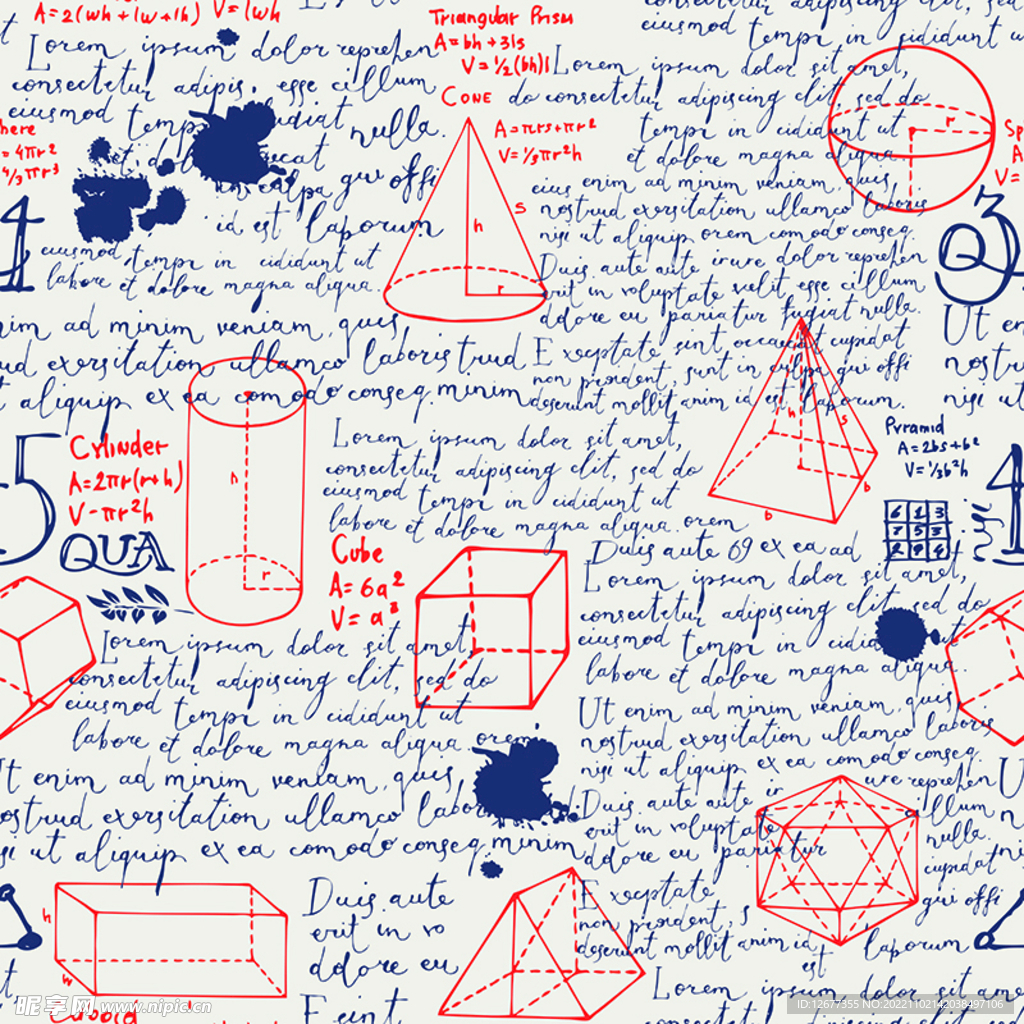 A=2(wh+lw+lh) V=lwh
Lorem ipsum dolor reprehen
consectetur adipis. esse cillum
eiusmod temp
nulla.
culpa qui offi
id est laborum
eiusmod tempr in cididunt ut
labore et dolore magna aliqua.
Triangular Prism
A=bh+3ls
V=½(bh)l
Cone
A=πrs+πr²
V=⅓πr²h
h
s
r
eiusmod tempr in cididunt u
Lorem ipsum dolor sit amet,
do consectetur adipiscing elit, sed do
tempr in cididunt ut
et dolore magna aliqua.
eius enim ad minim veniam, quis
nostrud exersitation ullamco laboris
nisi ut aliquip orem comodo conseq.
Duis aute aute irure dolor reprehen
erit in voluptate velit esse cillum
ddolore eu pariatur fugiat nulla.
Exceptate sint occaecat cupidat
non proident, sunt in culpa qui offi
deserunt mollit anim id est laborum.
r
here
=4πr²
4/3πr³
Sp
A
V=
4
3
Q
Ut en
nostru
nisi ut
nim ad minim veniam, quis
ud exersitation ullamco laboris trud
t aliquip ex ea comodo conseq. minim
5
Cylinder
A=2πr(r+h)
V-πr²h
QUA
h
r
Lorem ipsum dolor sit amet,
consectetur adipiscing elit, sed do
eiusmod tempr in cididunt ut
labore et dolore magna aliqua. orem
h
s
b
b
Pyramid
A=2bs+b²
V=⅓b²h
4
6 1 3
7 5 3
2 9 4
Cube
A=6a²
V=a³
Duis aute 69 ex ea ad
Lorem ipsum dolor sit amet,
consectetur adipiscing elit, sed do
eiusmod tempr in cididunt ut
labore et dolore magna aliqua.
Lorem ipsum dolor sit amet,
consectetur adipiscing elit, sed do
eiusmod tempr in cididunt ut
labore et dolore magna aliqua. orem
Ut enim ad minim veniam, quis
ostrud exersitation ullamco labo
isi ut aliquip ex ea comodo conseq. minim
Ut enim ad minim veniam, quis
nostrud exersitation ullamco laboris
nisi ut aliquip ex ea comodo conseq.
Duis aute aute ir
ure reprehen
erit in voluptate
illum
ddolore eu pariatur
nulla.
Exceptate
cupidat
non proident, s
qui offi
deserunt mollit anim id
est
laborum
h
w
Cuboid
Duis aute
erit in vo
ddolore eu
E eint
Lorem ipsum dolor sit ame
昵享网 www.nipic.cn
ID:12677355 NO:20221102142038497106